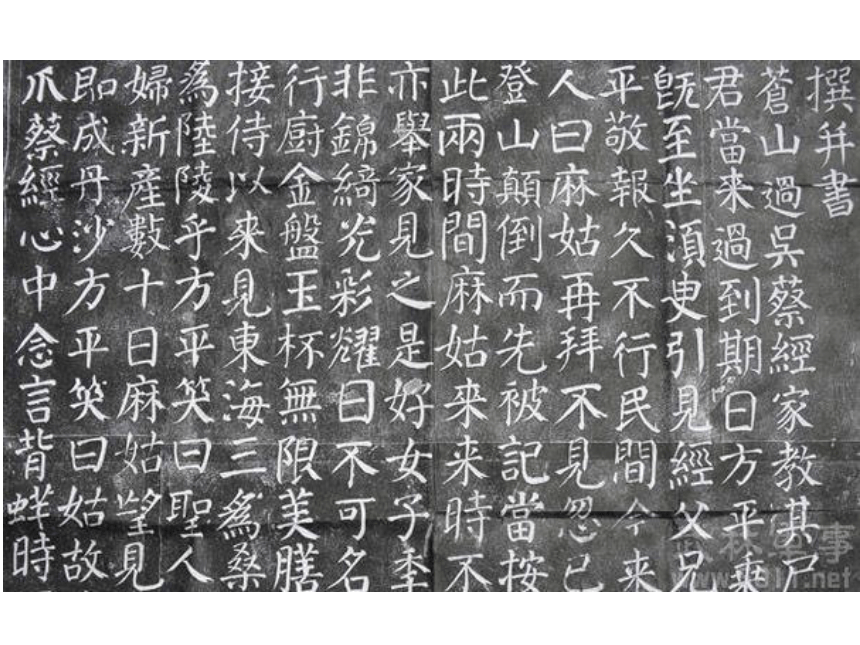 撰并書
蒼山過吳蔡經家教其尸
君當來過到期日方平乘
既至坐須臾引見經父兄
平敬報久不行民間今來
人曰麻姑再拜不見忽已
登山顛倒而先被記當按
此兩時間麻姑來來時不
亦舉家見之是好女子秊
非錦綺光彩耀日不可名
行廚金盤玉杯無限美膳
接侍以來見東海三為桑
為陸陵乎方平笑曰聖人
婦新產數十日麻姑望見
即成丹沙方平笑曰姑故
爪蔡經心中念言背蛘時